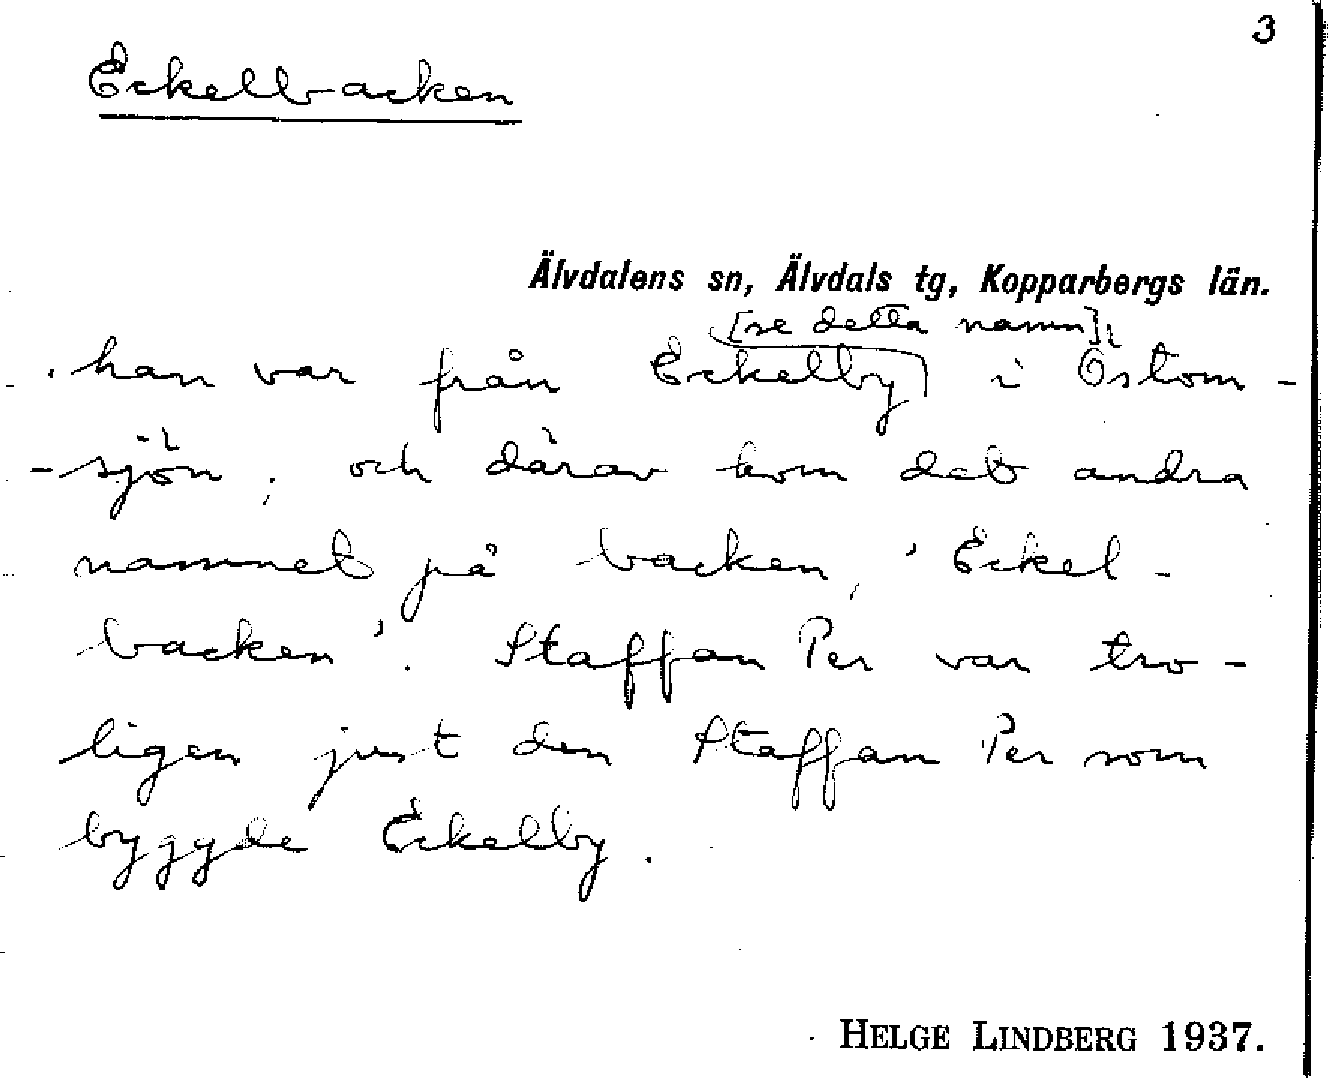 3
Eckelbacken
Älvdalens sn, Älvdals tg, Kopparbergs län.
[se detta namn]
han var från Eckelby i Östom-
-sjön, och därav kom det andra
namnet på backen, 'Eckel-
backen'. Staffan Per var tro-
ligen just den Staffan Per som
byggde Eckelby.
HELGE LINDBERG 1937.